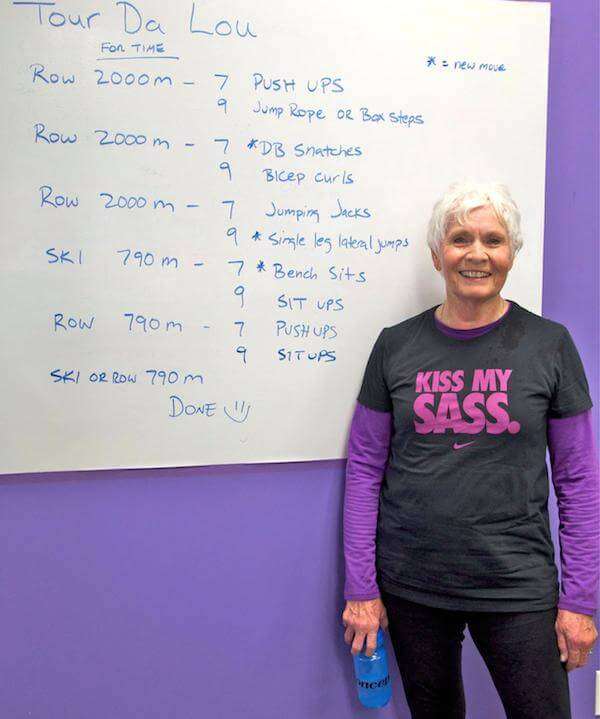 Tour Da Lou
FOR TIME
* = new move
Row 2000m - 7 PUSH UPS
9 Jump Rope OR Box Steps
Row 2000m - 7 *DB Snatches
9 Bicep curls
Row 2000m - 7 Jumping Jacks
9 * Single leg lateral jumps
SKI 790m - 7 * Bench Sits
9 SIT UPS
Row 790m - 7 PUSHUPS
9 SITUPS
SKI OR ROW 790m
DONE
KISS MY
SASS.